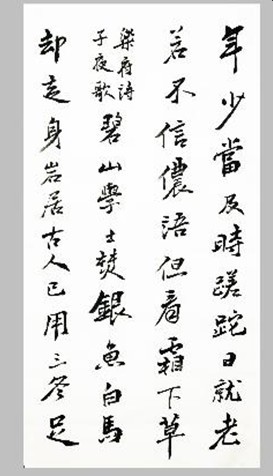 年少當及時蹉跎日就老
若不信儂語但看霜下草
樂府詩
子夜歌
碧山學士焚銀魚白馬
却走身岩居古人已用三冬足